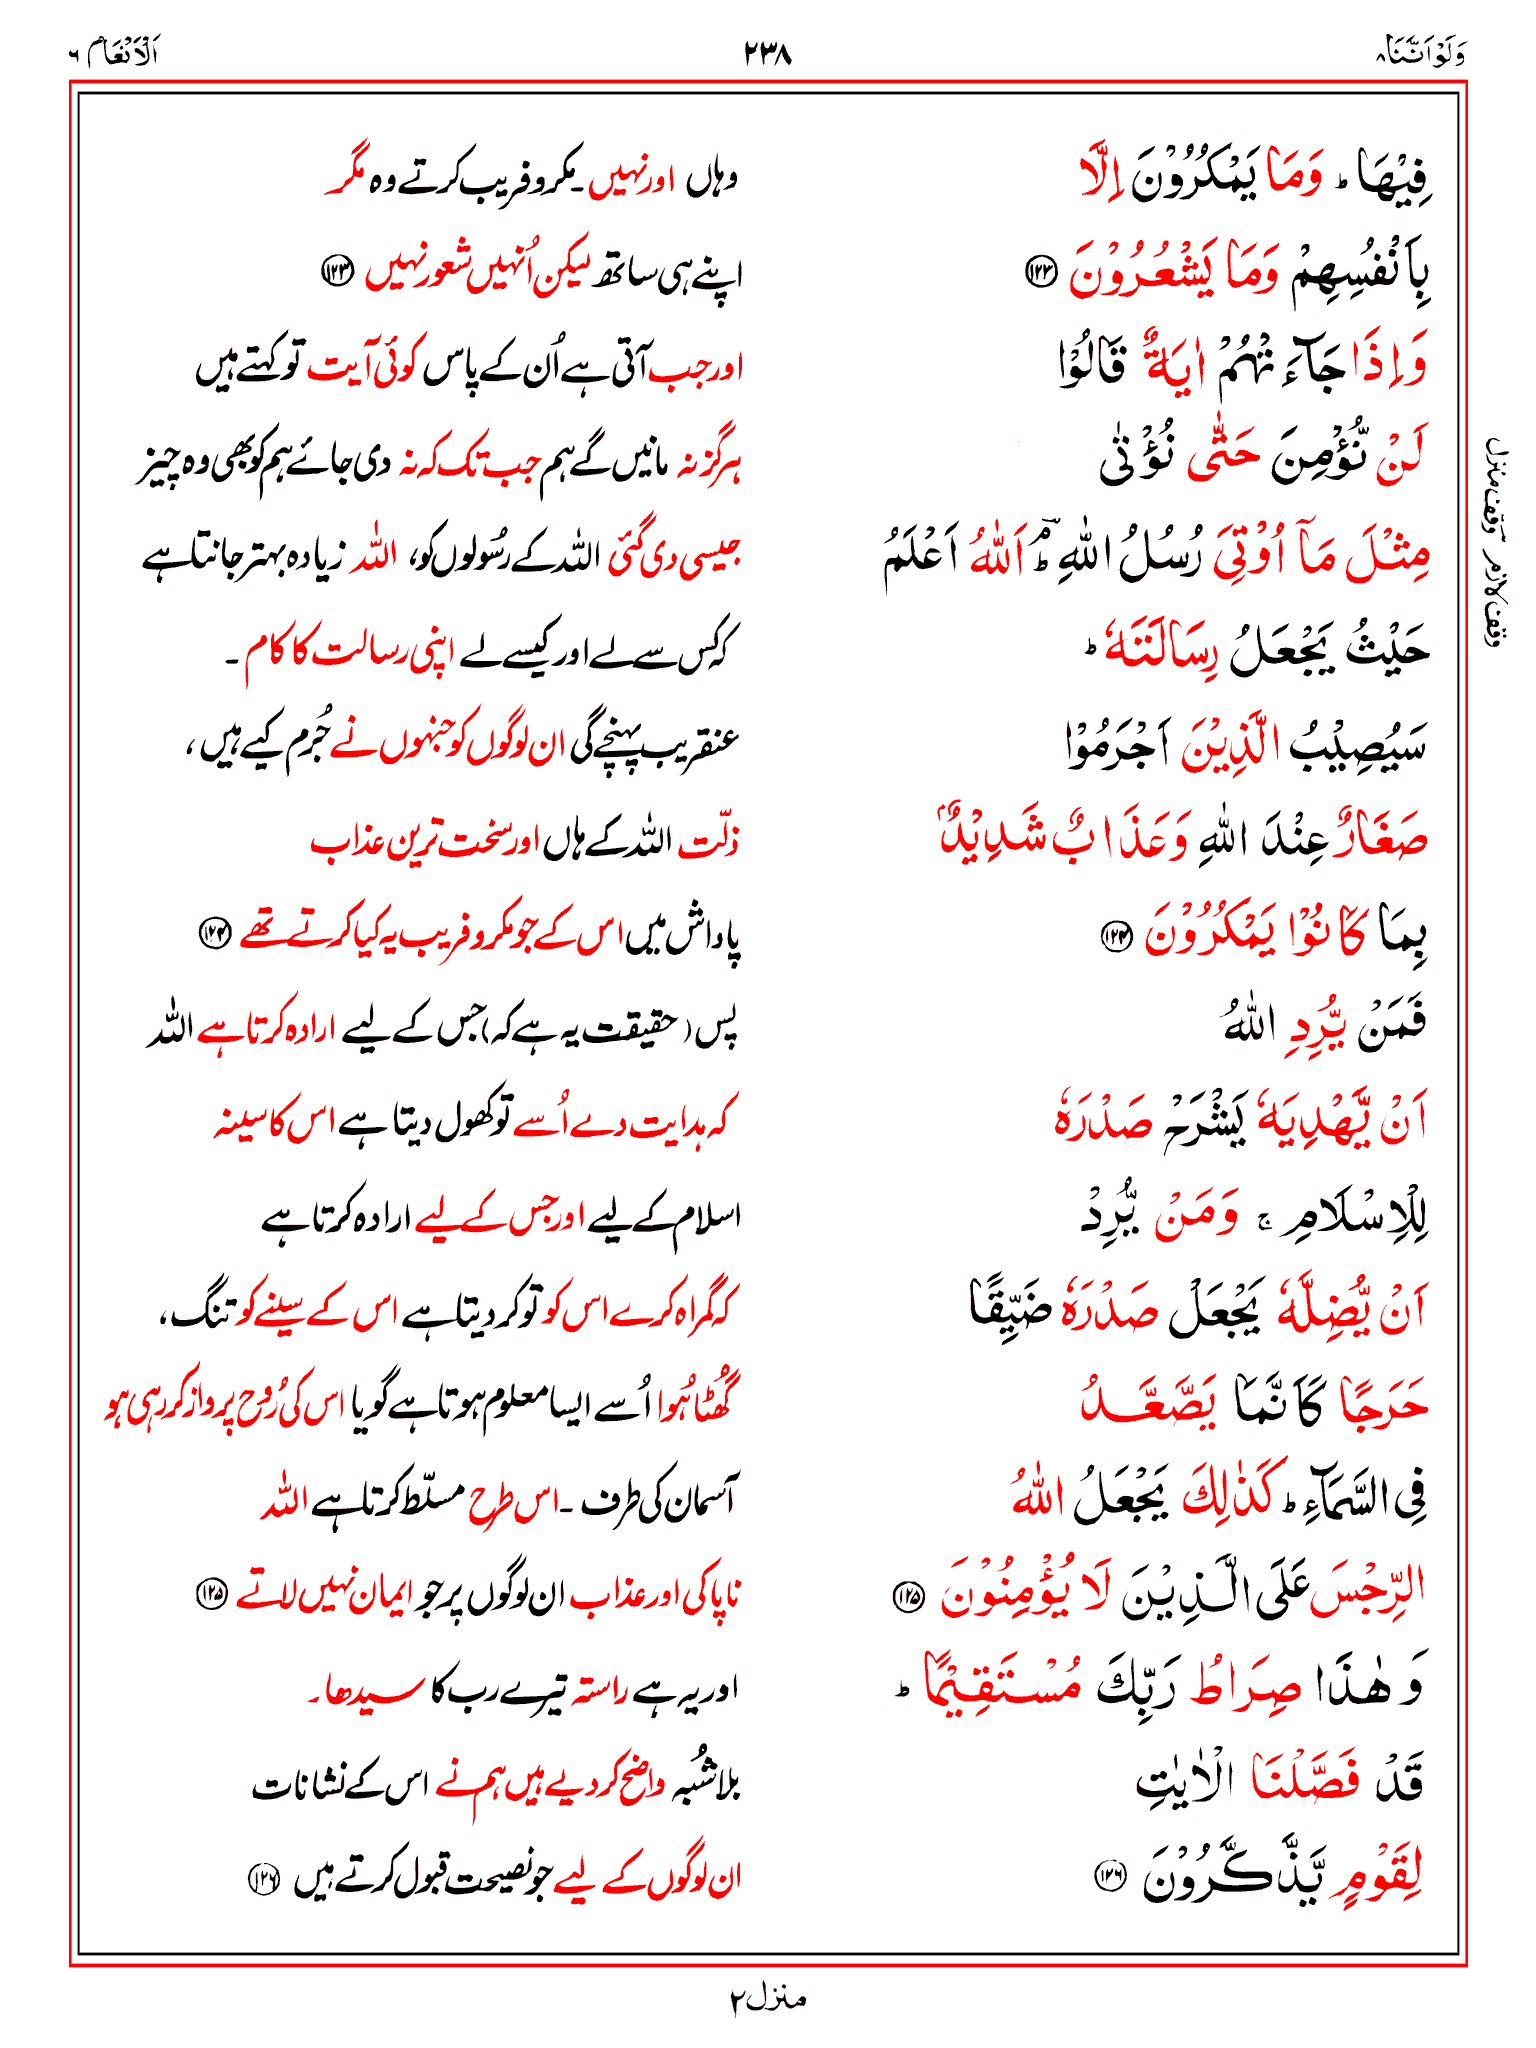 وَلَوْاَنَّنَا ٨
٢٣٨
اَلْاَنْعَام ٦
فِيْهَا ؕ وَمَا يَمْكُرُوْنَ اِلَّا
وہاں اور نہیں ۔ مکر و فریب کرتے وہ مگر
بِاَنْفُسِهِمْ وَمَا يَشْعُرُوْنَ ۝١٢٣
اپنے ہی ساتھ لیکن اُنہیں شعور نہیں ۝١٢٣
وَاِذَا جَآءَتْهُمْ اٰيَةٌ قَالُوْا
اور جب آتی ہے اُن کے پاس کوئی آیت تو کہتے ہیں
لَنْ نُّؤْمِنَ حَتّٰى نُؤْتٰى
ہرگز نہ مانیں گے ہم جب تک کہ نہ دی جائے ہم کو بھی وہ چیز
مِثْلَ مَآ اُوْتِىَ رُسُلُ اللّٰهِ ؕۘ اَللّٰهُ اَعْلَمُ
جیسی دی گئی اللہ کے رسُولوں کو، اللہ زیادہ بہتر جانتا ہے
حَيْثُ يَجْعَلُ رِسَالَتَهٗ ؕ
کہ کس سے لے اور کیسے لے اپنی رسالت کا کام ۔
سَيُصِيْبُ الَّذِيْنَ اَجْرَمُوْا
عنقریب پہنچے گی ان لوگوں کو جنہوں نے جُرم کیے ہیں،
صَغَارٌ عِنْدَ اللّٰهِ وَعَذَابٌ شَدِيْدٌۢ
ذلّت اللہ کے ہاں اور سخت ترین عذاب
بِمَا كَانُوْا يَمْكُرُوْنَ ۝١٢٤
پاداش میں اس کے جو مکر و فریب یہ کیا کرتے تھے ۝١٢٤
فَمَنْ يُّرِدِ اللّٰهُ
پس (حقیقت یہ ہے کہ) جس کے لیے ارادہ کرتا ہے اللہ
اَنْ يَّهْدِيَهٗ يَشْرَحْ صَدْرَهٗ
کہ ہدایت دے اُسے تو کھول دیتا ہے اس کا سینہ
لِلْاِسْلَامِ ۚ وَمَنْ يُّرِدْ
اسلام کے لیے اور جس کے لیے ارادہ کرتا ہے
اَنْ يُّضِلَّهٗ يَجْعَلْ صَدْرَهٗ ضَيِّقًا
کہ گمراہ کرے اس کو تو کر دیتا ہے اس کے سینے کو تنگ،
حَرَجًا كَاَنَّمَا يَصَّعَّدُ
گھُٹا ہُوا اُسے ایسا معلوم ہوتا ہے گویا اس کی رُوح پرواز کر رہی ہو
فِى السَّمَآءِ ؕ كَذٰلِكَ يَجْعَلُ اللّٰهُ
آسمان کی طرف ۔ اس طرح مسلّط کرتا ہے اللہ
الرِّجْسَ عَلَى الَّذِيْنَ لَا يُؤْمِنُوْنَ ۝١٢٥
ناپاکی اور عذاب ان لوگوں پر جو ایمان نہیں لاتے ۝١٢٥
وَهٰذَا صِرَاطُ رَبِّكَ مُسْتَقِيْمًا ؕ
اور یہ ہے راستہ تیرے رب کا سیدھا۔
قَدْ فَصَّلْنَا الْاٰيٰتِ
بلاشُبہ واضح کر دیے ہیں ہم نے اس کے نشانات
لِقَوْمٍ يَّذَّكَّرُوْنَ ۝١٢٦
ان لوگوں کے لیے جو نصیحت قبول کرتے ہیں ۝١٢٦
وقف لازم وقف منزل
منزل ٢